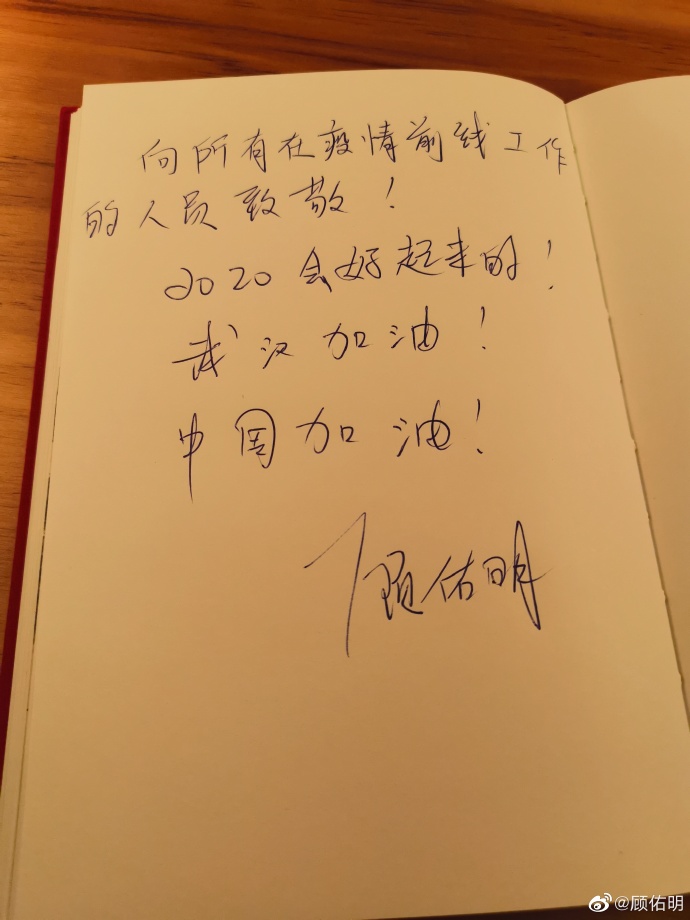 向所有在疫情前线工作
的人员致敬！
2020会好起来的！
武汉加油！
中国加油！
顾佑明
@顾佑明